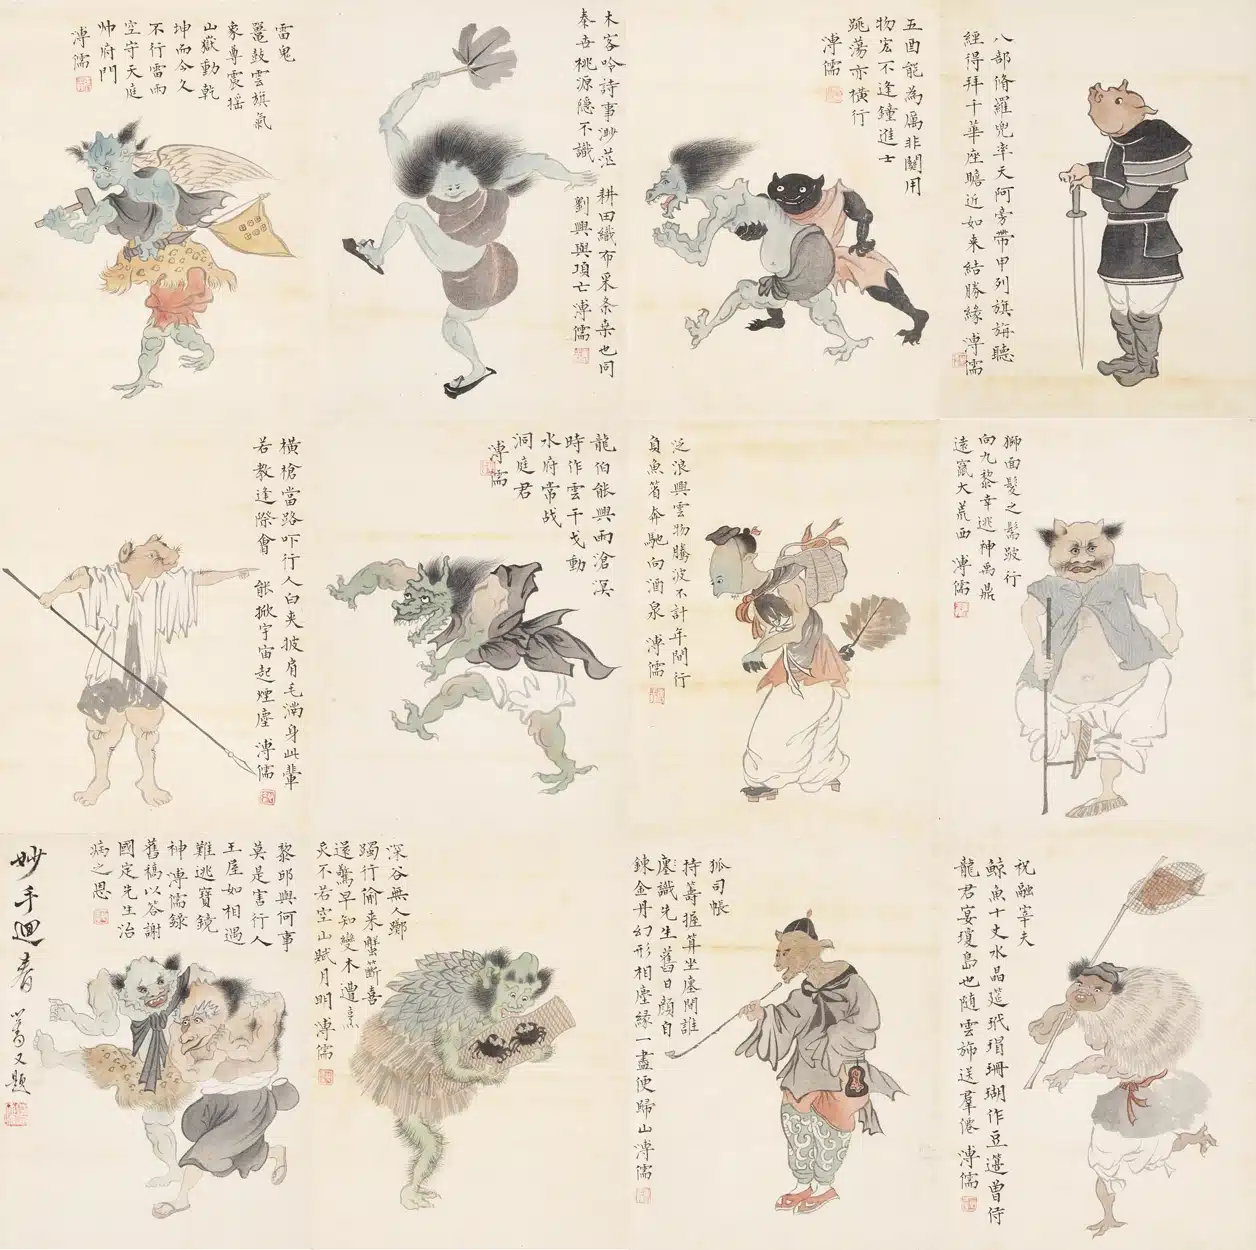 八部脩羅兜率天阿旁帶甲列旗旃聽
經得拜千華座瞻近如来結勝緣 溥儒
五酉能為厲非關用
物宏不逢鐘進士
跳蕩亦橫行
溥儒
木客吟詩事渺茫 耕田織布采条桑也同
秦世桃源隐不識 劉興與項亡 溥儒
雷鬼
鼉鼓雲旗氣
象尊震摇
山嶽動乾
坤而今久
不行雷雨
空守天庭
帅府門
溥儒
獅面髮之 跛行
向九黎幸逃神禹鼎
遠竄大荒西 溥儒
泛浪興雲物騰波不計年閒行
負魚筩奔馳向酒泉 溥儒
龍伯能興雨滄溟
時作雲干戈動
水府常战
洞庭君
溥儒
橫槍當路吓行人白夾披肩毛滿身此輩
若教逢際會 能掀宇宙起煙塵 溥儒
祝融宰夫
鯨魚十丈水晶筵玳瑁珊瑚作豆籩曾侍
龍君宴瓊島也随雲斾送羣僊 溥儒
狐司帳
持籌握算坐廛閈誰
識先生舊日顏自
鍊金丹幻形相塵緣一盡便歸山 溥儒
深谷無人躑
躅行偷来蟹籪喜
還驚早知變木遭
炙不若空山賦月明 溥儒
黎邱與何事
莫是害行人
王屋如相遇
難逃寶鏡
神 溥儒録
舊稿以答謝
國定先生治
病之恩
妙手迴春
又題